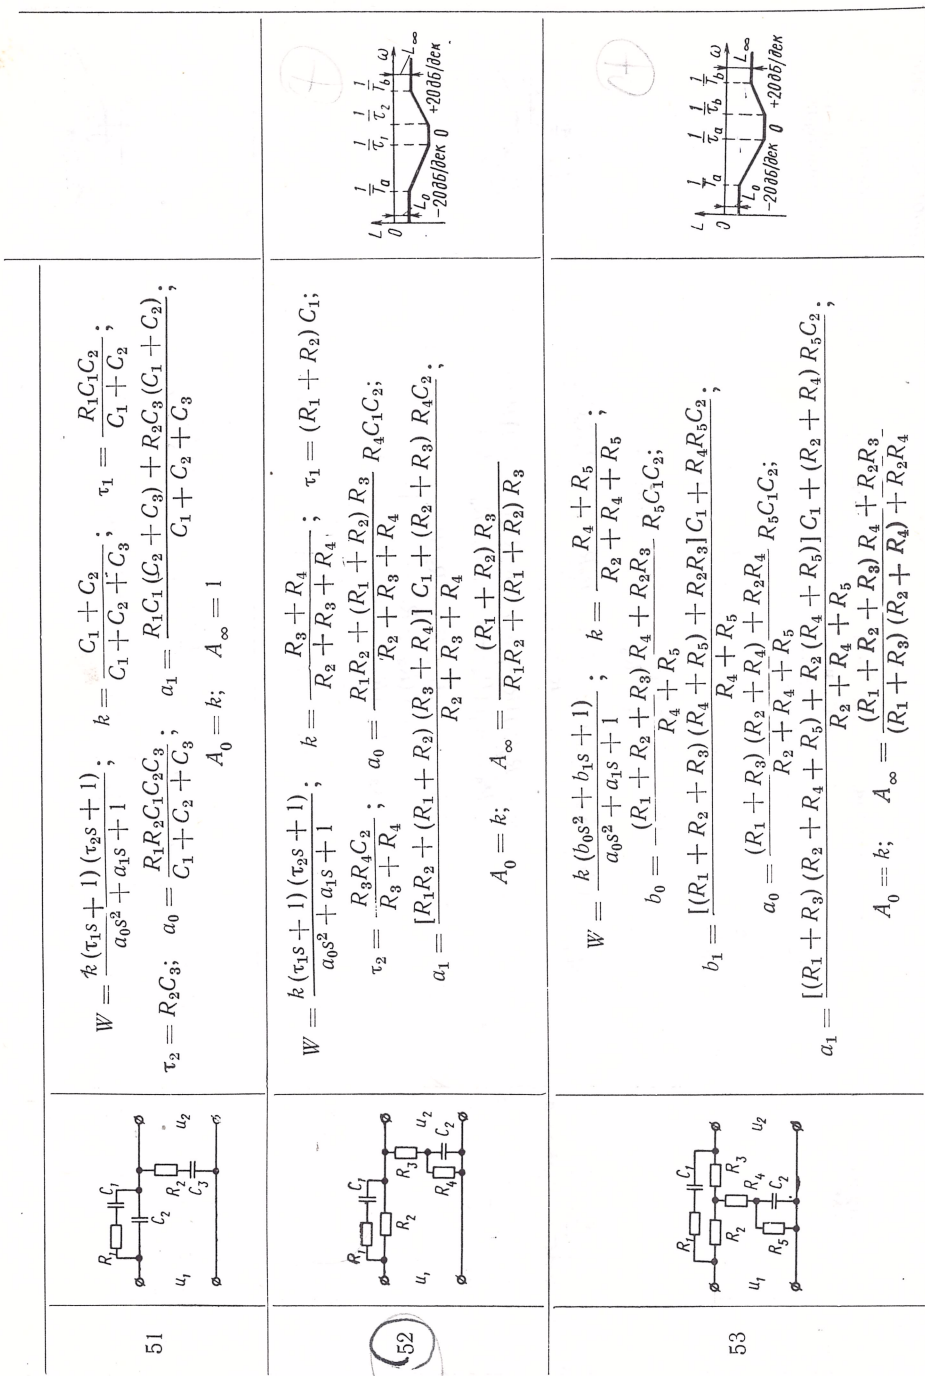 51
R₁ C₁
C₂
R₂
C₃
u₁ u₂
W = k (τ₁s + 1) (τ₂s + 1) / (a₀s² + a₁s + 1); k = (C₁ + C₂) / (C₁ + C₂ + C₃); τ₁ = R₁C₁C₂ / (C₁ + C₂);
τ₂ = R₂C₃; a₀ = R₁R₂C₁C₂C₃ / (C₁ + C₂ + C₃); a₁ = (R₁C₁ (C₂ + C₃) + R₂C₃ (C₁ + C₂)) / (C₁ + C₂ + C₃);
A₀ = k; A∞ = 1
52
R₁ C₁
R₂
R₃
R₄ C₂
u₁ u₂
W = k (τ₁s + 1) (τ₂s + 1) / (a₀s² + a₁s + 1); k = (R₃ + R₄) / (R₂ + R₃ + R₄); τ₁ = (R₁ + R₂) C₁;
τ₂ = R₃R₄C₂ / (R₃ + R₄); a₀ = (R₁R₂ + (R₁ + R₂) R₃) / (R₂ + R₃ + R₄) R₄C₁C₂;
a₁ = ([R₁R₂ + (R₁ + R₂) (R₃ + R₄)] C₁ + (R₂ + R₃) R₄C₂) / (R₂ + R₃ + R₄);
A₀ = k; A∞ = (R₁ + R₂) R₃ / (R₁R₂ + (R₁ + R₂) R₃)
L 1/Tₐ 1/τ₁ 1/τ₂ 1/T_b ω
0 L₀ L∞
−20дб/дек 0 +20дб/дек
53
R₁ C₁
R₂ R₃
R₄
R₅ C₂
u₁ u₂
W = k (b₀s² + b₁s + 1) / (a₀s² + a₁s + 1); k = (R₄ + R₅) / (R₂ + R₄ + R₅);
b₀ = ((R₁ + R₂ + R₃) R₄ + R₂R₃) / (R₄ + R₅) R₅C₁C₂;
b₁ = ([(R₁ + R₂ + R₃) (R₄ + R₅) + R₂R₃] C₁ + R₄R₅C₂) / (R₄ + R₅);
a₀ = ((R₁ + R₃) (R₂ + R₄) + R₂R₄) / (R₂ + R₄ + R₅) R₅C₁C₂;
a₁ = ([(R₁ + R₃) (R₂ + R₄ + R₅) + R₂ (R₄ + R₅)] C₁ + (R₂ + R₄) R₅C₂) / (R₂ + R₄ + R₅);
A₀ = k; A∞ = ((R₁ + R₂ + R₃) R₄ + R₂R₃) / ((R₁ + R₃) (R₂ + R₄) + R₂R₄)
L 1/Tₐ 1/τₐ 1/τ_b 1/T_b ω
0 L₀ L∞
−20дб/дек 0 +20дб/дек